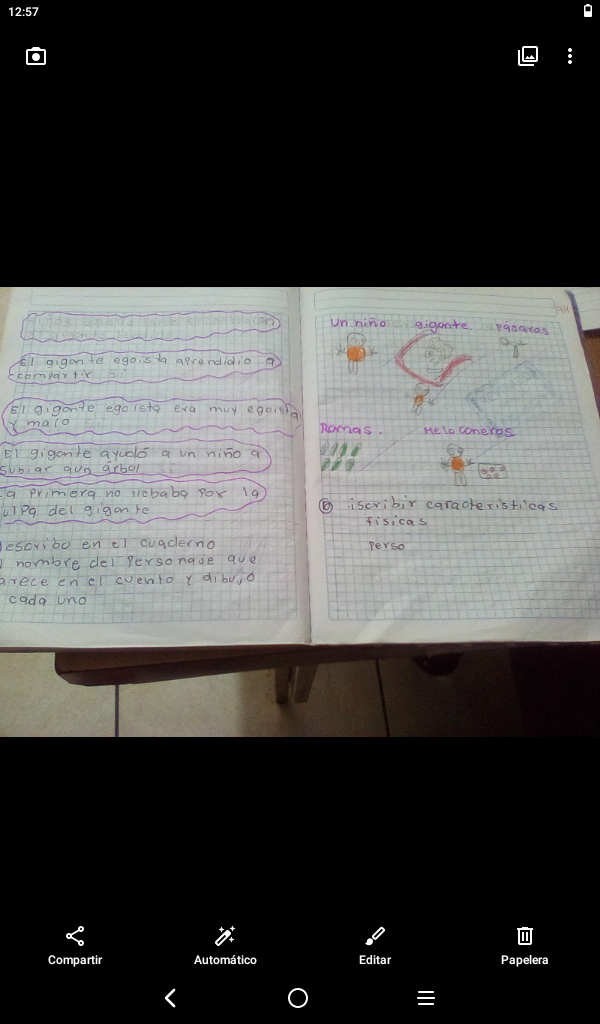 12:57
El gigante egoista aprendidio a
compartir
El gigante egoista era muy egoista
y malo
El gigante ayudó a un niño a
subiar aun árbol
la primera no llebaba por la
ulpa del gigante
escribo en el cuaderno
nombre del personaje que
arece en el cuento y dibujo
cada uno
94
Un niño gigante pasaros
Ramas. Meloconeros
6 iscribir caracteristicas
fisicas
perso
Compartir Automático Editar Papelera